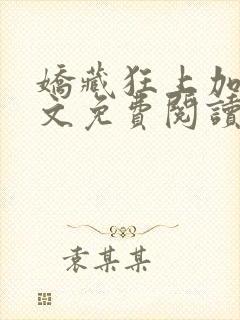 嬌藏狂上加
文免費閱讀
袁某某